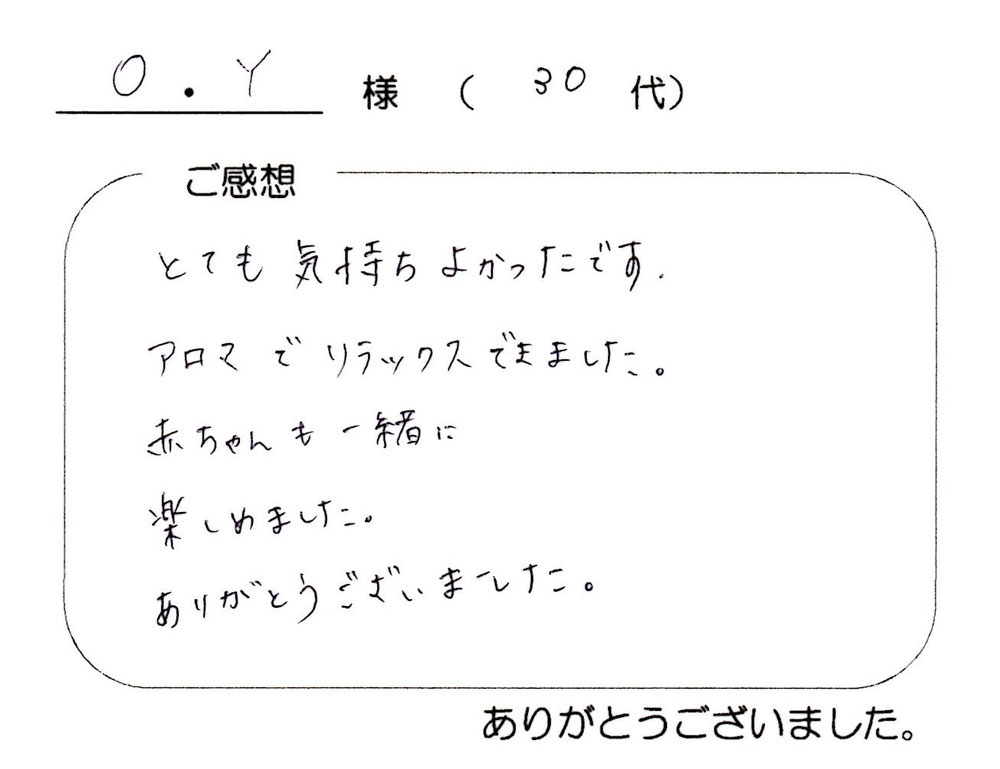 O.Y 様 （ 30 代）
ご感想
とても 気持ち よかったです.
アロマ で リラックス できました。
赤ちゃん も 一緒に
楽しめました。
ありがとうございました。
ありがとうございました。